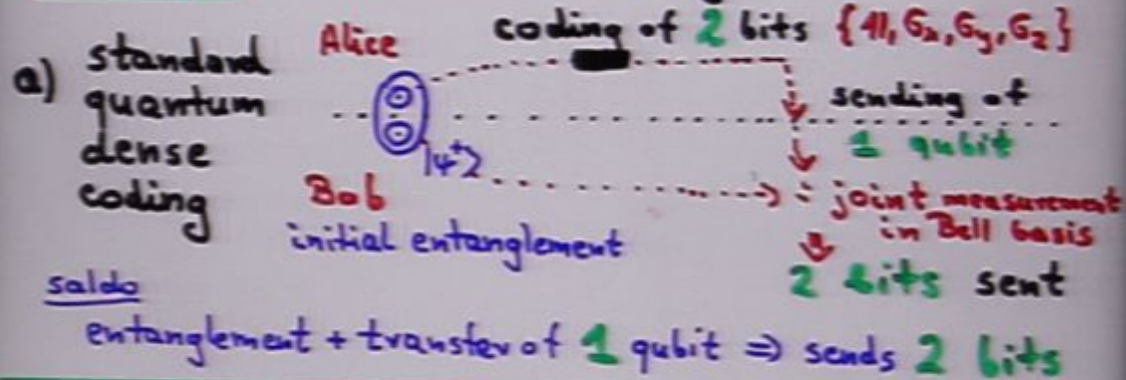 a) standard quantum dense coding
Alice
coding of 2 bits {1, σx, σy, σz}
sending of
1 qubit
|ψ+>
Bob
initial entanglement
joint measurement
in Bell basis
2 bits sent
saldo
entanglement + transfer of 1 qubit ⇒ sends 2 bits